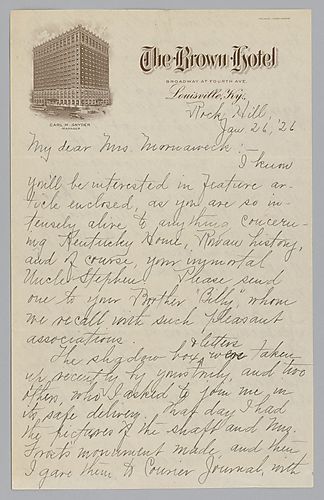 The Brown Hotel
BROADWAY AT FOURTH AVE.
Louisville, Ky.
CARL H. SNYDER
MANAGER
Rock Hill,
Jan 26, '26
My dear Mrs. Morneweck:—
I know
you'll be interested in feature ar-
ticle enclosed, as you are so in-
tensely alive to anything concern-
ing Kentucky Home, Rowan history,
and of course, your immortal
Uncle Stephen. Please send
one to your Brother 'Billy', whom
we recall with such pleasant
associations.
& letters
The shadow box, were taken
up recently by yours truly, and two
others, who I asked to join me, in
its safe delivery. That day I had
the pictures of the shaft and Mrs.
Frost's monument made, and then
I gave them to Courier Journal, with